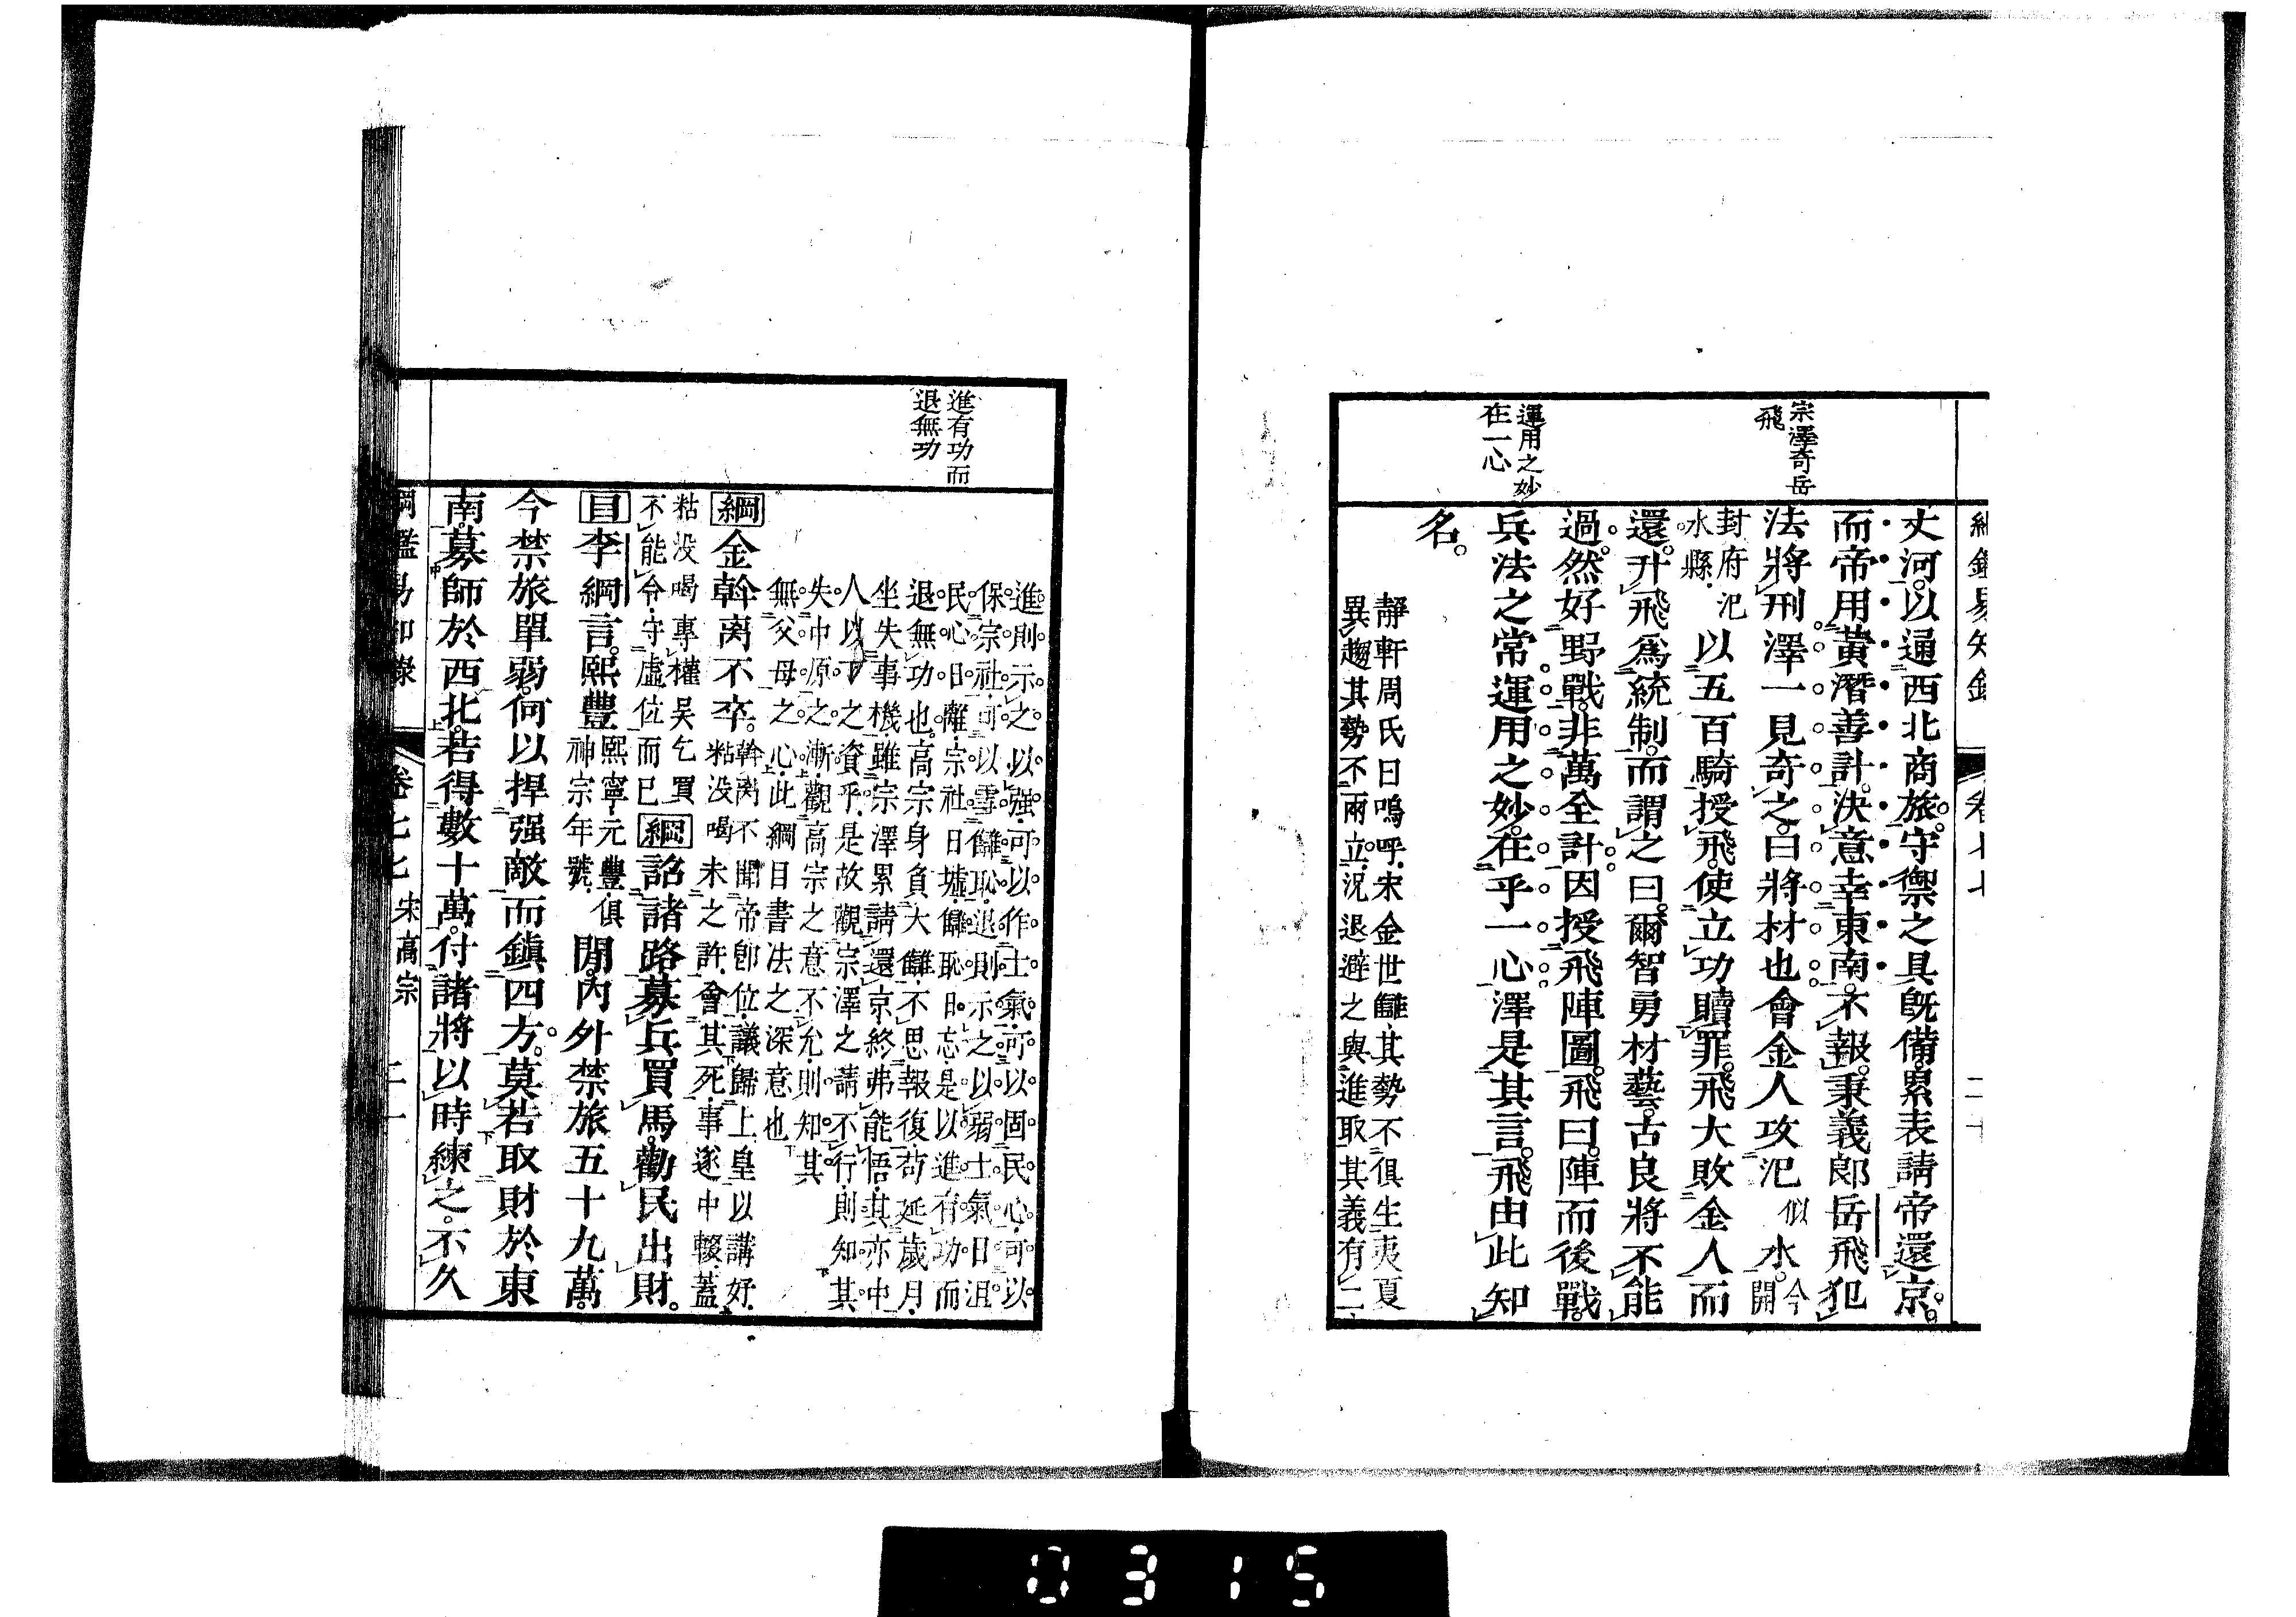 綱鑑易知錄
卷七十七
丈河以通西北商旅。守禦之具既備累表請帝還京。
而帝用黃潛善計。決意幸東南不報。秉義郎岳飛犯
宗澤奇岳
飛
法將刑澤一見奇之曰將材也會金人攻汜似水。今開
封府汜
水縣。以五百騎授飛使立功贖罪。飛大敗金人而
還。升飛爲統制。而謂之曰爾智勇材藝古良將不能
過。然好野戰。非萬全計因授飛陣圖。飛曰。陣而後戰。
運用之妙
在一心
兵法之常運用之妙在乎一心澤是其言。飛由此知
名。
靜軒周氏曰嗚呼宋金世讎其勢不俱生夷夏
異趨其勢不兩立況退避之與進取其義有二
進則示之以强可以作士氣可以固民心可以
保宗社可以雪讎恥退則示之以弱士氣日沮
進有功而
退無功
民心日離宗社日墟讎恥日忘是以進有功而
退無功也高宗身負大讎不思報復苟延歲月
坐失事機雖宗澤累請還京終弗能悟其亦中
人以下之資乎是故觀宗澤之請不行則知其
失中原之漸觀高宗之意不允則知其
無父母之心此綱目書法之深意也
綱金斡离不卒。斡离不聞帝卽位議歸上皇以講好
粘没喝未之許會其死事遂中輟蓋
粘没喝專權吳乞買
不能令守虛位而已綱詔諸路募兵買馬勸民出財。
目李綱言熙豐熙寧元豐俱
神宗年號閒內外禁旅五十九萬
今禁旅單弱何以捍强敵而鎭四方。莫若取財於東
南募師於西北若得數十萬付諸將以時練之不久
綱鑑易知錄
卷七七
宋高宗
二十一
0315